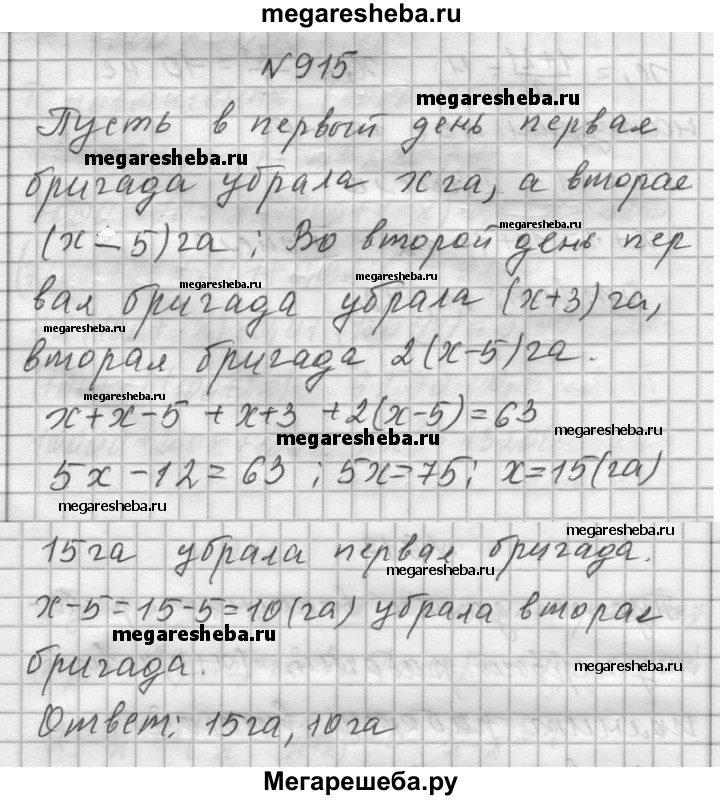 megaresheba.ru
№915
megaresheba.ru
Пусть в первый день первая
megaresheba.ru
бригада убрала x га, а вторая
megaresheba.ru
(x-5)га; Во второй день пер
megaresheba.ru
вая бригада убрала (x+3)га,
megaresheba.ru
вторая бригада 2(x-5)га.
megaresheba.ru
x+x-5+x+3+2(x-5)=63
megaresheba.ru
megaresheba.ru
5x-12=63; 5x=75; x=15(га)
megaresheba.ru
megaresheba.ru
15га убрала первая бригада.
megaresheba.ru
x-5=15-5=10(га) убрала вторая
megaresheba.ru
бригада.
megaresheba.ru
Ответ: 15га, 10га
Мегарешеба.ру